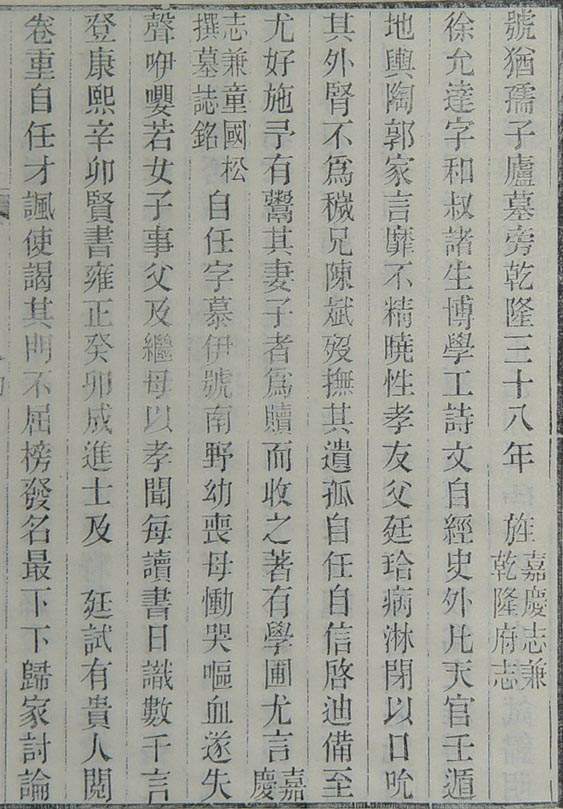 號猶孺子廬墓旁乾隆三十八年 旌嘉慶志兼乾隆府志
徐允達字和叔諸生博學工詩文自經史外凡天官壬遁
地輿陶郭家言靡不精曉性孝友父廷珆病淋閉以口吮
其外腎不爲穢兄陳斌歿撫其遺孤自任自信啓迪備至
尤好施予有鬻其妻子者爲贖而收之著有學圃尤言嘉慶
志兼童國松撰墓誌銘 自任字慕伊號南野幼喪母慟哭嘔血遂失
聲咿嚶若女子事父及繼母以孝聞每讀書日識數千言
登康熙辛卯賢書雍正癸卯成進士及 廷試有貴人閱
卷重自任才諷使謁其門不屈榜發名最下下歸家討論